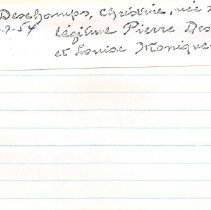 Deschamps, Christine, née
.7-54 légitime Pierre Des
et Louise Monique